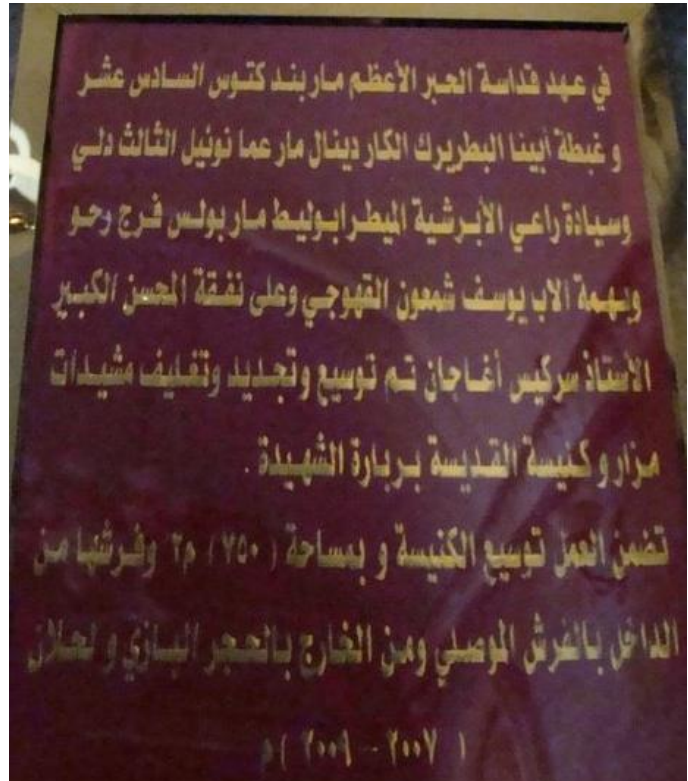 في عهد قداسة الحبر الأعظم مار بند كتوس السادس عشر
و غبطة أبينا البطريرك الكار دينال مار عما نوئيل الثالث دلي
وسيادة راعي الأبرشية الميطرابوليط مار بولس فرج رحو
وبهمة الاب يوسف شمعون القهوجي وعلى نفقة المحسن الكبير
الأستاذ سركيس أغاجان تم توسيع وتجديد وتغليف مشيدات
مزار و كنيسة القديسة بربارة الشهيدة .
تضمن العمل توسيع الكنيسة و بمساحة ( ٧٥٠ ) م٢ وفرشها من
الداخل بالفرش الموصلي ومن الخارج بالحجر البازي و لحلان
( ٢٠٠٧ - ٢٠٠٩ ) م